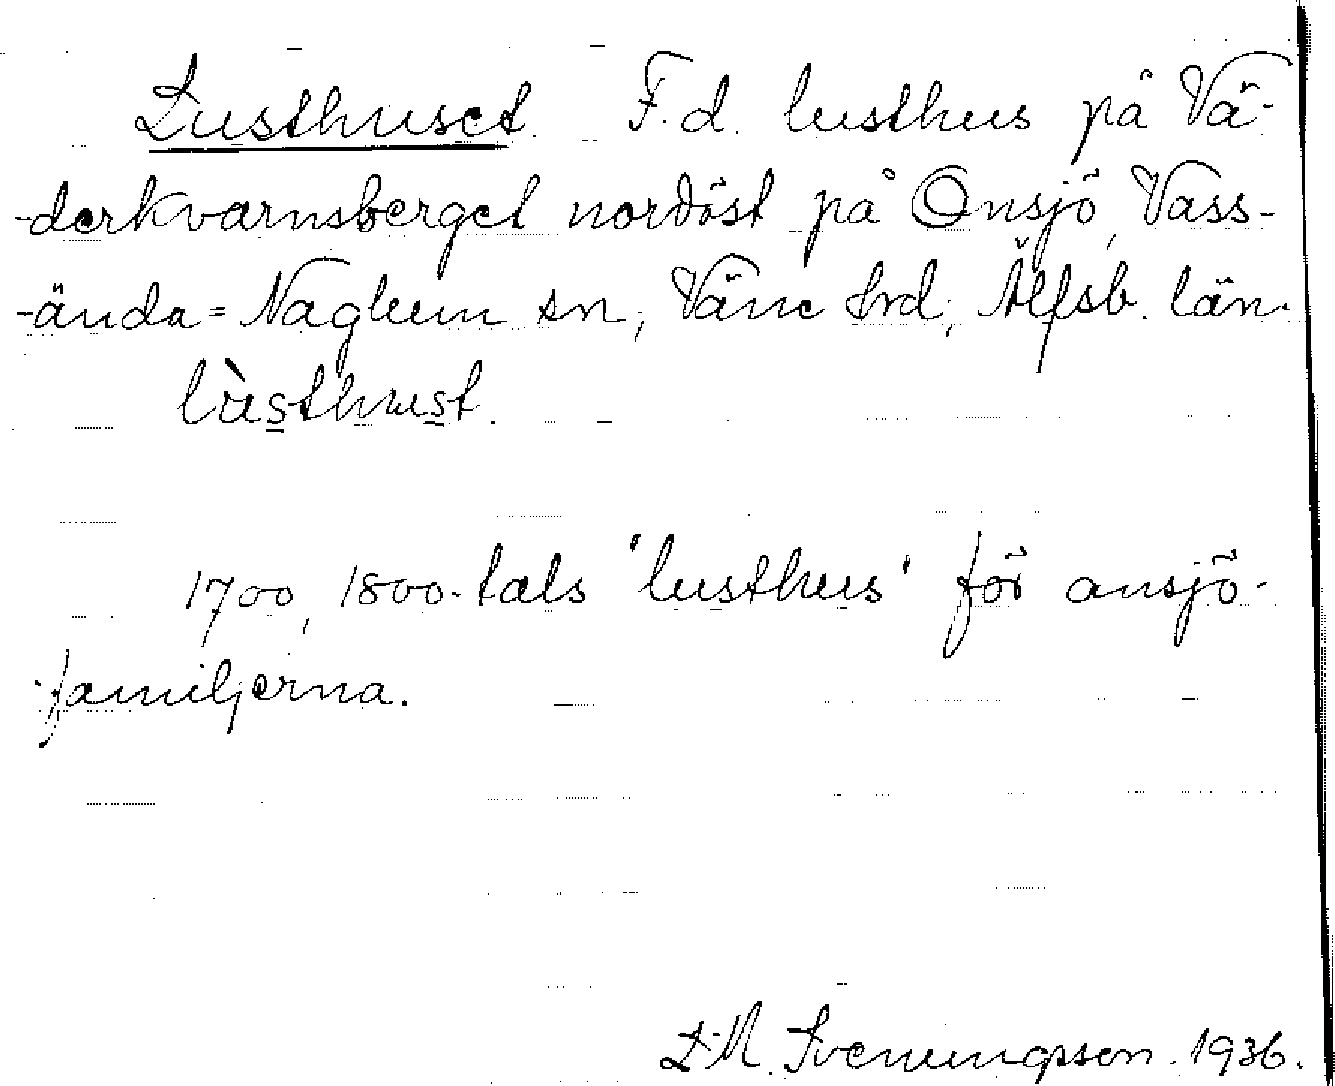 Lusthuset. F.d. lusthus på Vä-
-derkvarnsberget nordöst på Onsjö, Vass-
-ända=Naglum sn, Väne hrd, Älfsb. län.
lùsthuset.
1700, 1800-tals 'lusthus' för onsjö-
-familjerna.
L.M. Svenungsson. 1936.